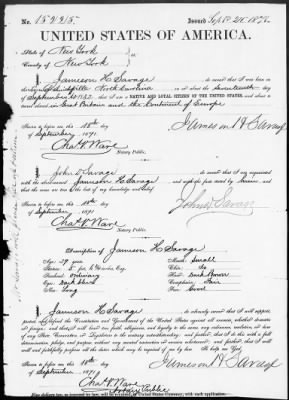 No. 15,225. Issued Sept 21st 187
UNITED STATES OF AMERICA.
State of New York
County of New York
I, Jamieson H Savage do swear that I was born in
North Carolina on or about the Seventeenth day of
September, that I am a NATIVE AND LOYAL CITIZEN OF THE UNITED STATES and about to
travel in Great Britain and the Continent of Europe
Sworn to before me this 18th day
of September, 187 Jameson H Savage
Chas. H. Ware
Notary Public.
I, John Savage do swear that I am acquainted
with the abovenamed Jamieson H Savage and with the facts stated by him, and
that the same are true to the best of my knowledge and belief.
Sworn to before me this 18th day
of September, 187 John Savage
Chas. H. Ware
Notary Public.
Description of Jamieson H Savage
Age: 29 years
Stature: 5 feet inches, Eng.
Forehead: ordinary
Eyes: Dark
Nose: Long
Mouth: Small
Chin: do
Hair: Dark Brown
Complexion: Fair
Face: Oval
I, Jamieson H Savage do solemnly swear that I will support,
protect and defend the Constitution and Government of the United States against all enemies, whether domestic
or foreign; and that I will bear true faith, allegiance and loyalty to the same, any ordinance, resolution, or law
of any State, Convention or Legislature to the contrary notwithstanding; and further, that I do this with a full
determination, pledge, and purpose, without any mental reservation or evasion whatsoever; and further, that I
will well and faithfully perform all the duties which may be required of me by law. So help me God.
Sworn to before me this 18th day
of September, 187 Jameson H Savage
Chas. H. Ware
Notary Public